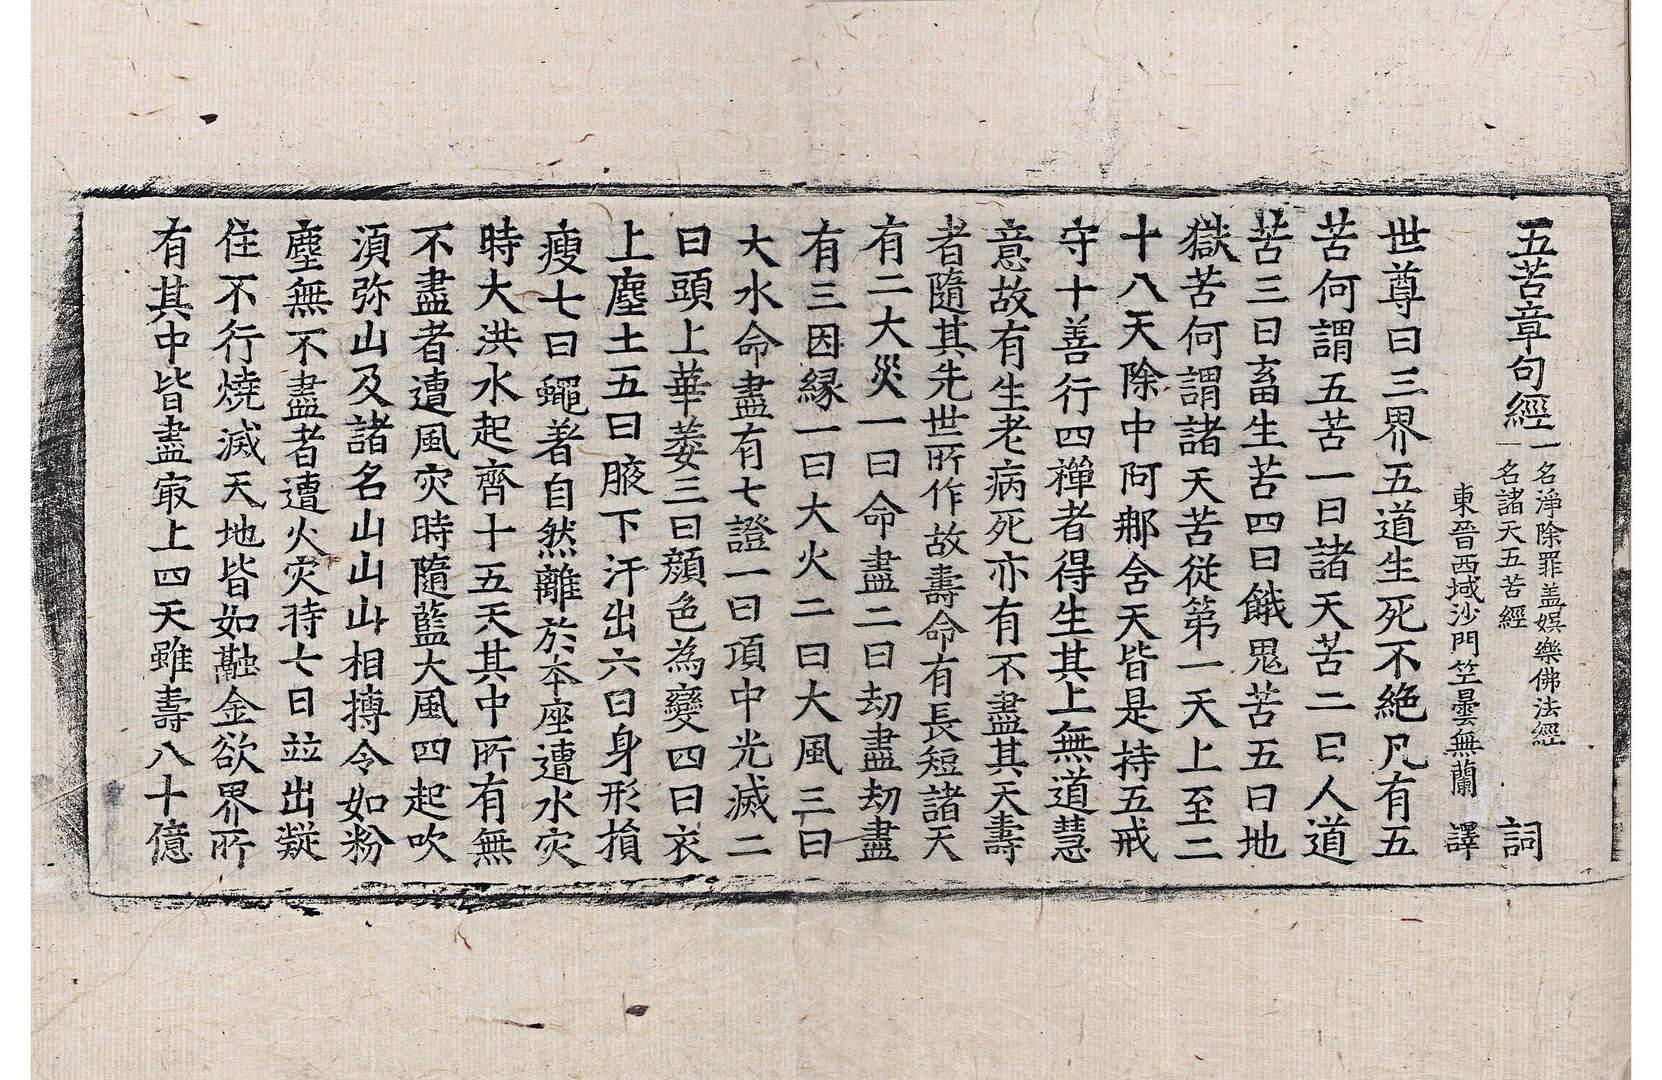 五苦章句經
一名淨除罪盖娯樂佛法經
一名諸天五苦經
詞
東晉西域沙門竺曇無蘭 譯
世尊曰三界五道生死不絶凡有五
苦何謂五苦一曰諸天苦二曰人道
苦三曰畜生苦四曰餓鬼苦五曰地
獄苦何謂諸天苦從第一天上至二
十八天除中阿那舍天皆是持五戒
守十善行四禪者得生其上無道慧
意故有生老病死亦有不盡其天壽
者隨其先世所作故壽命有長短諸天
有二大災一曰命盡二曰劫盡劫盡
有三因縁一曰大火二曰大風三曰
大水命盡有七證一曰項中光滅二
曰頭上華萎三曰顔色為變四曰衣
上塵土五曰腋下汗出六曰身形損
瘦七曰蠅著自然離於本座遭水灾
時大洪水起齊十五天其中所有無
不盡者遭風灾時隨藍大風四起吹
須弥山及諸名山山山相搏令如粉
塵無不盡者遭火灾時七日並出凝
住不行燒滅天地皆如融金欲界所
有其中皆盡㝡上四天雖壽八十億